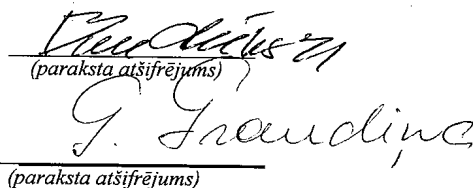 (paraksta atšifrējums)
G. Graudiņa
(paraksta atšifrējums)